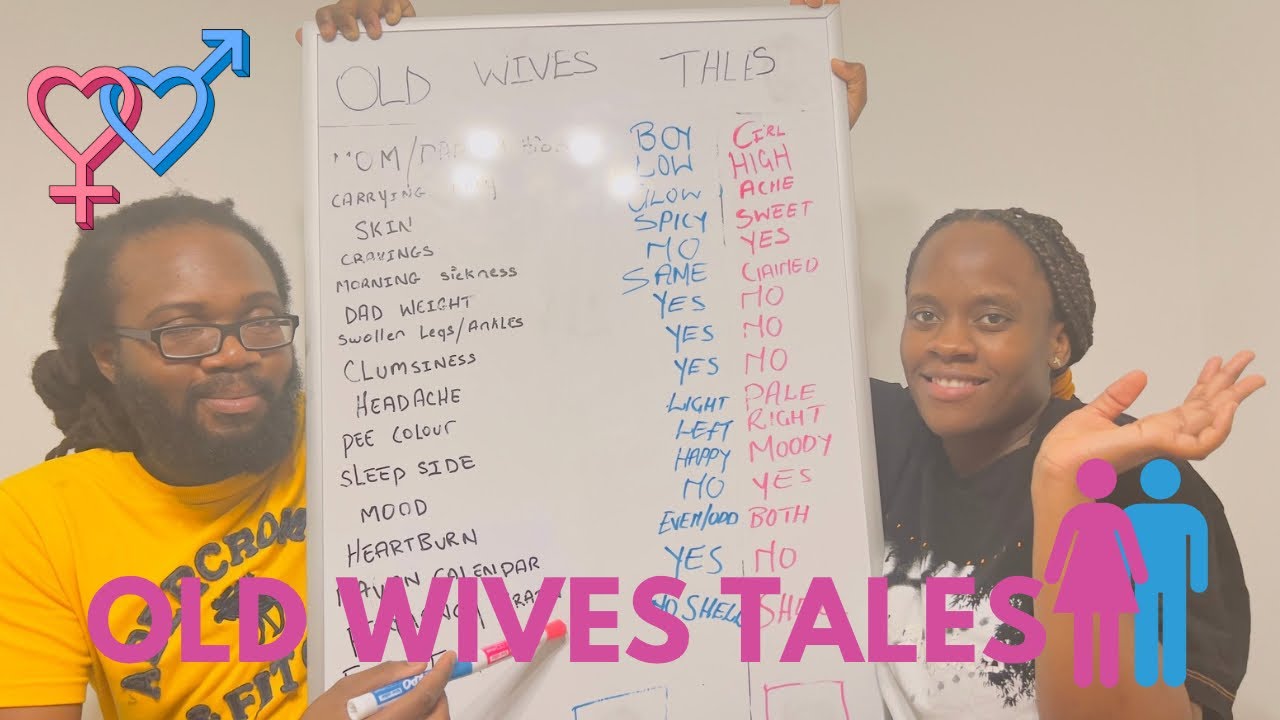 OLD WIVES TALES
MOM/ BOY GIRL
CARRYING LOW HIGH
SKIN GLOW ACHE
CRAVINGS SPICY SWEET
MORNING sickness NO YES
DAD WEIGHT SAME GAINED
Swollen Legs/Ankles YES NO
CLUMSINESS YES NO
HEADACHE YES NO
PEE COLOUR LIGHT PALE
SLEEP SIDE LEFT RIGHT
MOOD HAPPY MOODY
HEARTBURN NO YES
CALENDAR EVEN/ODD BOTH
YES NO
NO SHELL
OLD WIVES TALES
ABERCROM
& FIT
EXPO